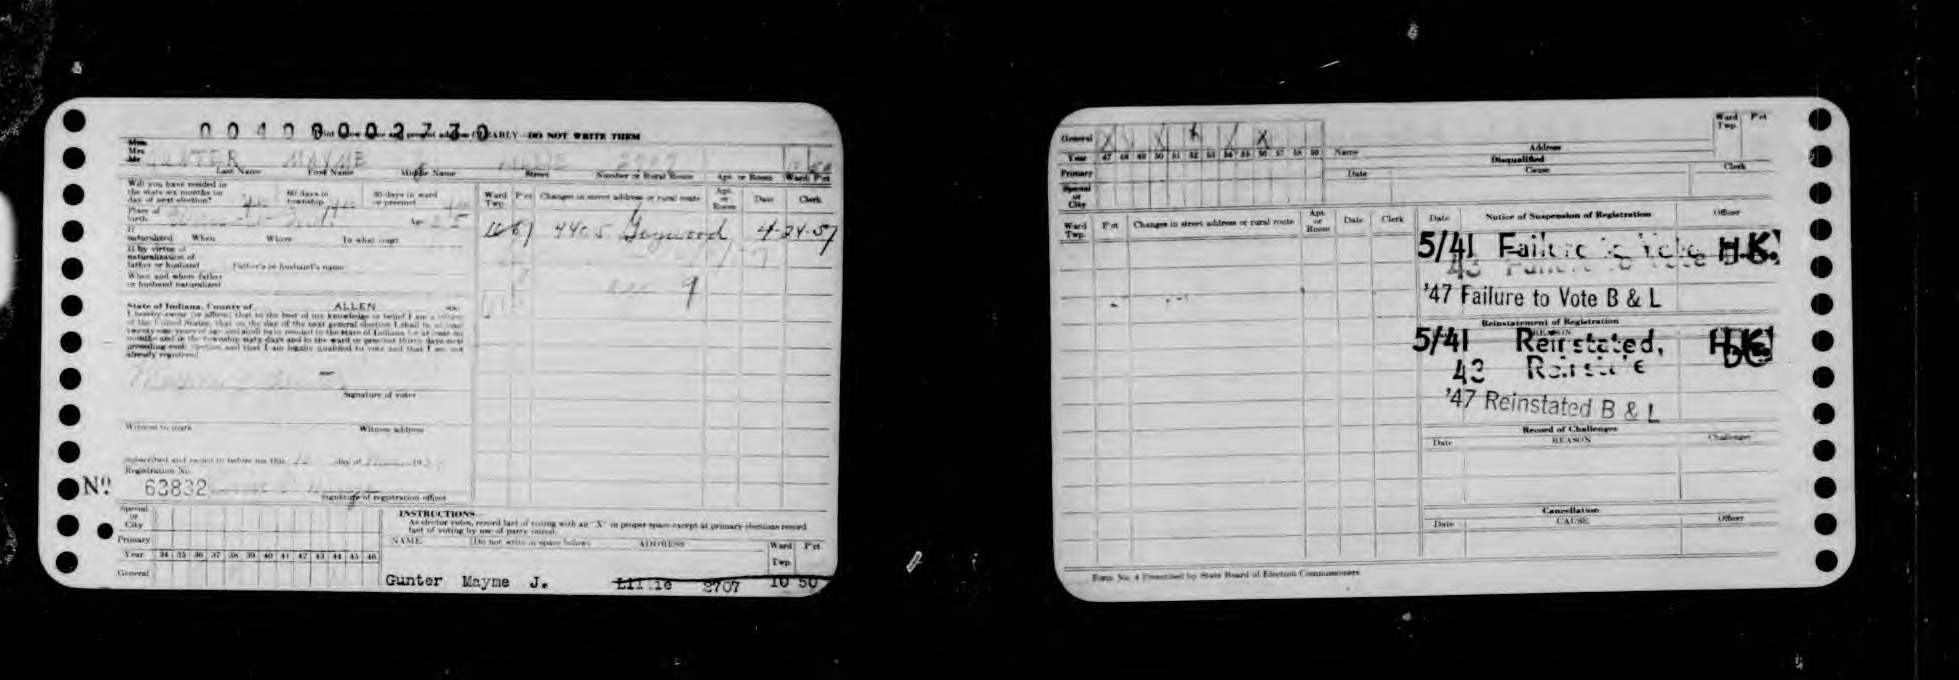 00409002730
Print your name and present address CLEARLY—DO NOT WRITE THEM
Mrs.
Mr.
GUNTER MAYME J. LILLIE 2707 10 50
Last Name First Name Middle Name Street Number or Rural Route Apt. or Room Ward P'ct
Will you have resided in
the state six months on
day of next election? yes 60 days in
township yes 30 days in ward
or precinct yes
Place of
birth Age
If
naturalized When Where In what court
If by virtue of
naturalization of
father or husband Father's or husband's name
When and where father
or husband naturalized
State of Indiana, County of ALLEN ss:
I hereby swear (or affirm) that to the best of my knowledge or belief I am a citizen
of the United States; that on the day of the next general election I shall be at least
twenty-one years of age and shall have resided in the state of Indiana for at least six
months and in the township sixty days and in the ward or precinct thirty days next
preceding such election and that I am legally qualified to vote and that I am not
already registered.
Signature of voter
Witness to mark Witness address
Subscribed and sworn to before me this day of 193
Registration No.
No. 63832
Signature of registration officer
Ward
Twp. P'ct Changes in street address or rural route Apt.
or
Room Date Clerk
10 67 4405 Gaywood 4-24-57
9
Special
or
City
Primary
Year 34 35 36 37 38 39 40 41 42 43 44 45 46
General
INSTRUCTIONS
As elector votes, record fact of voting with an "X" in proper space except at primary elections record
fact of voting by use of party initial.
NAME (Do not write in space below) ADDRESS Ward
Twp. P'ct
Gunter Mayme J. Lillie 2707 10 50
General X X X X X
Year 47 48 49 50 51 52 53 54 55 56 57 58 59
Primary
Special
or
City
Name Address Ward
Twp. P'ct
Disqualified
Date Cause Clerk
Ward
Twp. P'ct Changes in street address or rural route Apt.
or
Room Date Clerk
Date Notice of Suspension of Registration Officer
5/41 Failure to Vote H.K.
43 Failure to Vote
'47 Failure to Vote B & L
Reinstatement of Registration
REASON
5/41 Reinstated, H.K.
43 Reinstate
'47 Reinstated B & L
Record of Challenges
Date REASON Challenger
Cancellation
Date CAUSE Officer
Form No. 4 Prescribed by State Board of Election Commissioners